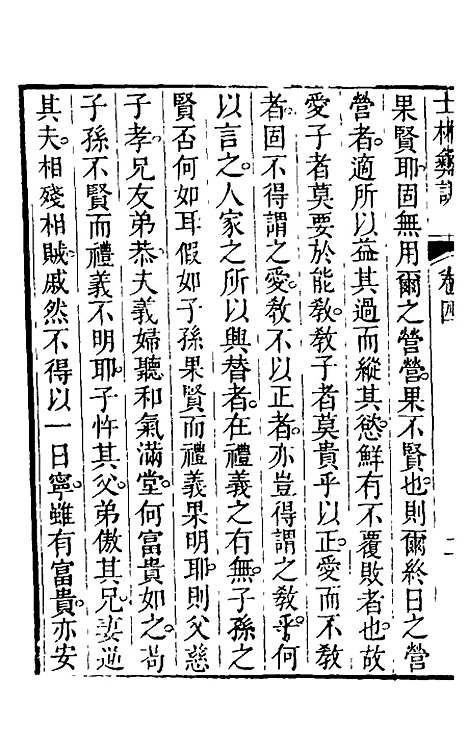 士林彝訓 卷四
果賢耶固無用爾之營營果不賢也則爾終日之營
營者適所以益其過而縱其慾鮮有不覆敗者也故
愛子者莫要於能教教子者莫貴乎以正愛而不教
者固不得謂之愛教不以正者亦豈得謂之教乎何
以言之人家之所以興替者在禮義之有無子孫之
賢否何如耳假如子孫果賢而禮義果明耶則父慈
子孝兄友弟恭夫義婦聽和氣滿堂何富貴如之苟
子孫不賢而禮義不明耶子忤其父弟傲其兄妻逆
其夫相殘相賊戚然不得以一日寧雖有富貴亦安